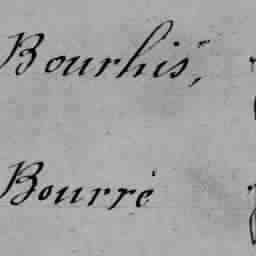 Bourhis,
Bourré